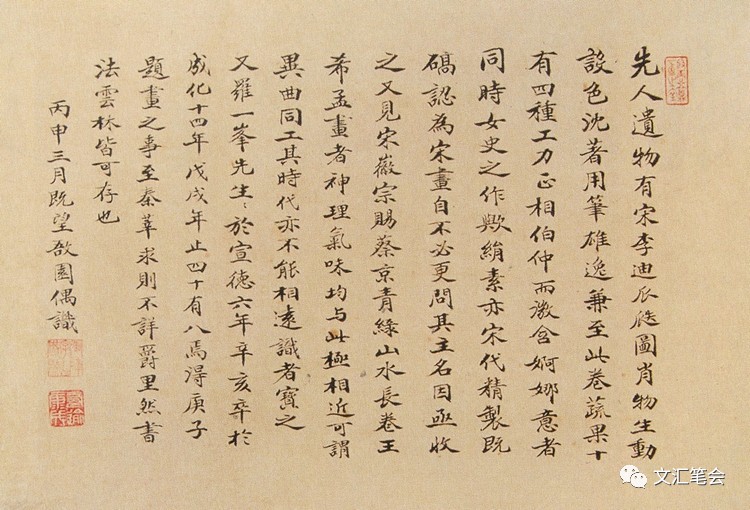 先人遺物有宋李迪瓜瓞圖肖物生動
設色沈著用筆雄逸兼至此卷蔬果十
有四種工力正相伯仲而微含婀娜意者
同時女史之作歟絹素亦宋代精製既
碻認為宋畫自不必更問其主名因亟收
之又見宋徽宗賜蔡京青綠山水長卷王
希孟畫者神理氣味均与此極相近可謂
異曲同工其時代亦不能相遠識者寶之
又羅一峯先生:於宣德六年辛亥卒於
成化十四年戊戌年止四十有八焉得庚子
題畫之事至秦莘求則不詳爵里然書
法雲林皆可存也
丙申三月既望敔園偶識
文汇笔会